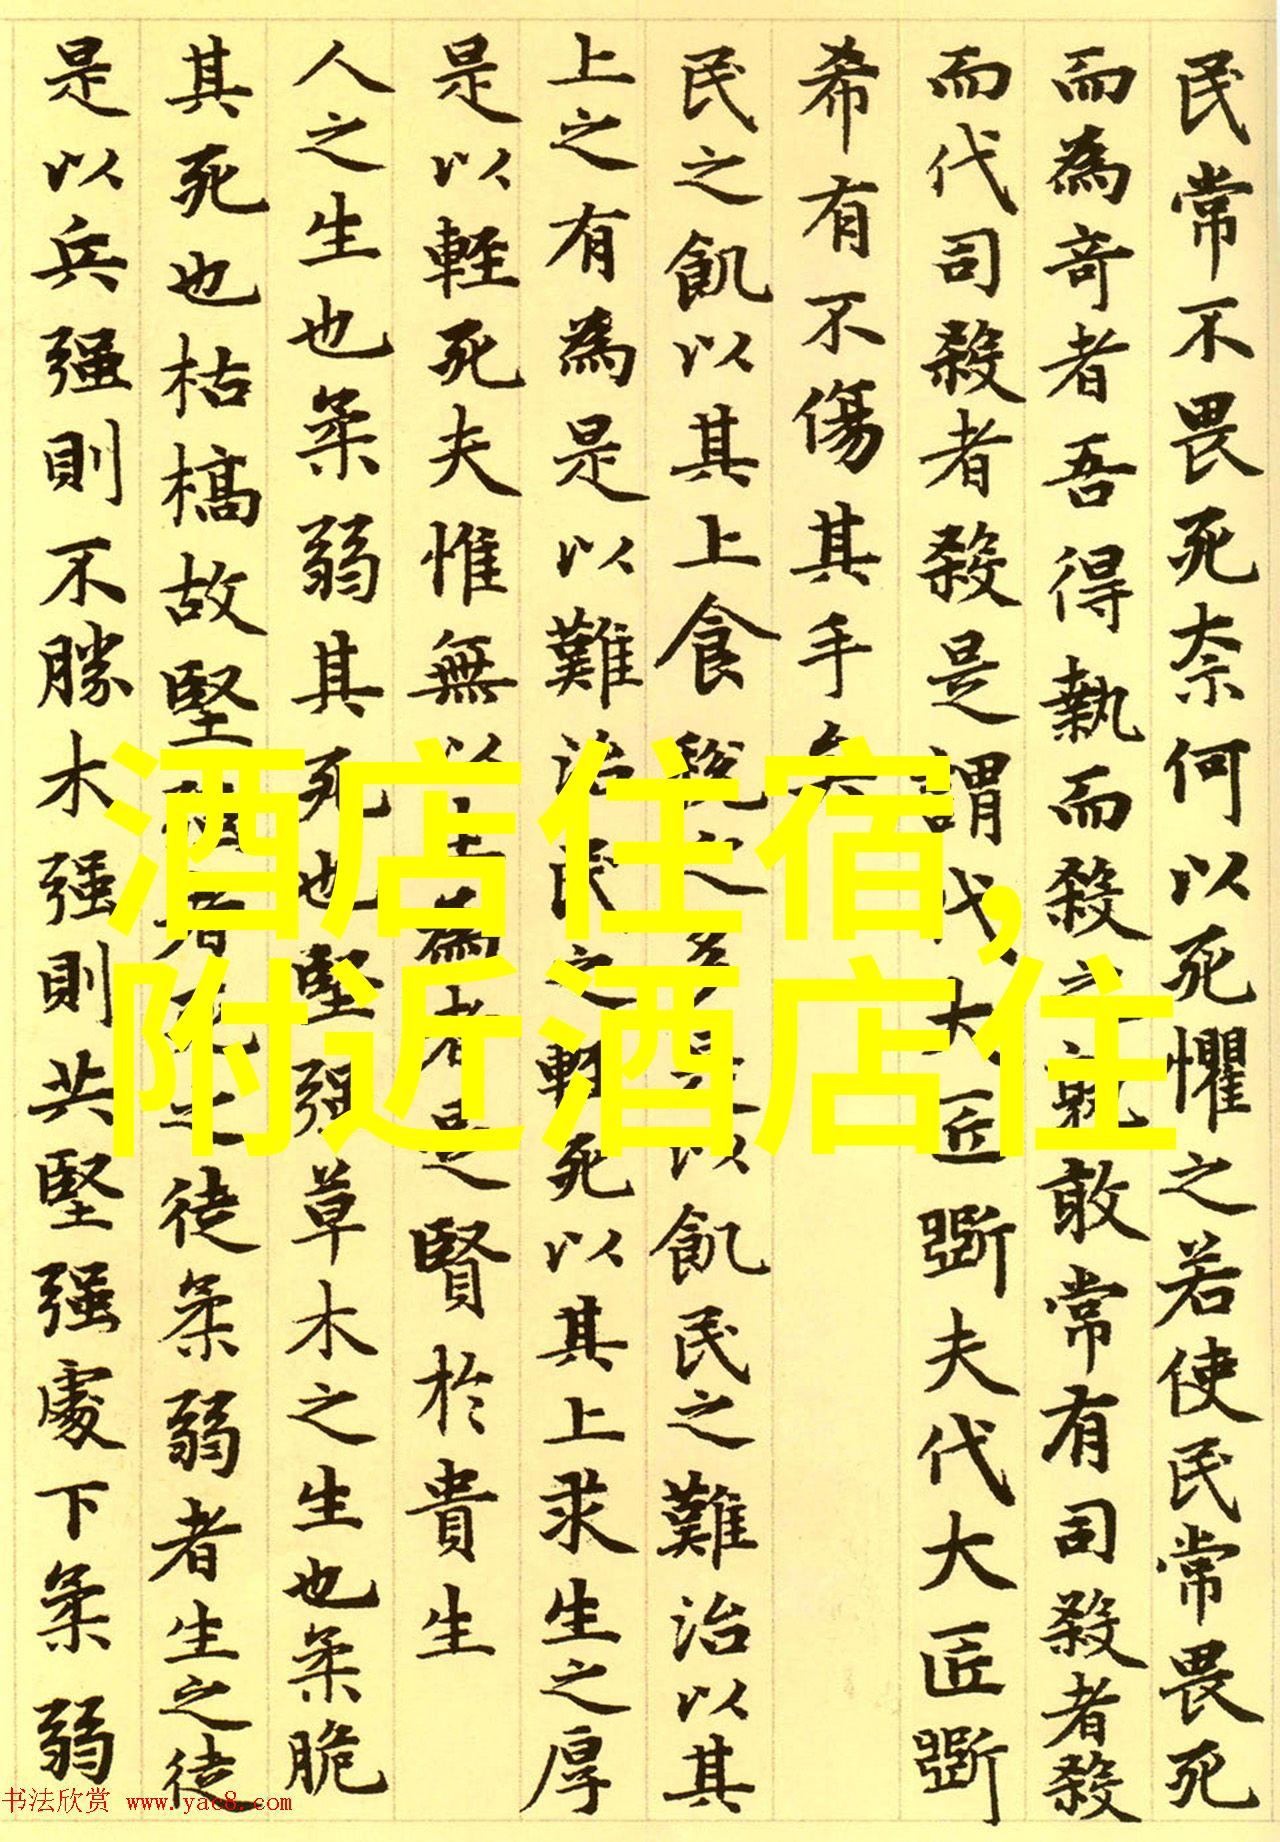 民常不畏死奈何以死懼之若使民常畏死
而為奇者吾得執而殺之孰敢常有司殺者殺
而代司殺者殺是謂代大匠斲夫代大匠斲
希有不傷其手矣
民之飢以其上食稅之多是以飢民之難治以其
上之有為是以難治民之輕死以其上求生之厚
是以輕死夫惟無以生為者是賢於貴生
人之生也柔弱其死也堅強草木之生也柔脆
其死也枯槁故堅強者死之徒柔弱者生之徒
是以兵强則不勝木强則共堅强處下柔弱
酒店住宿,
附近酒店住
书法欣赏 www.yac8.com